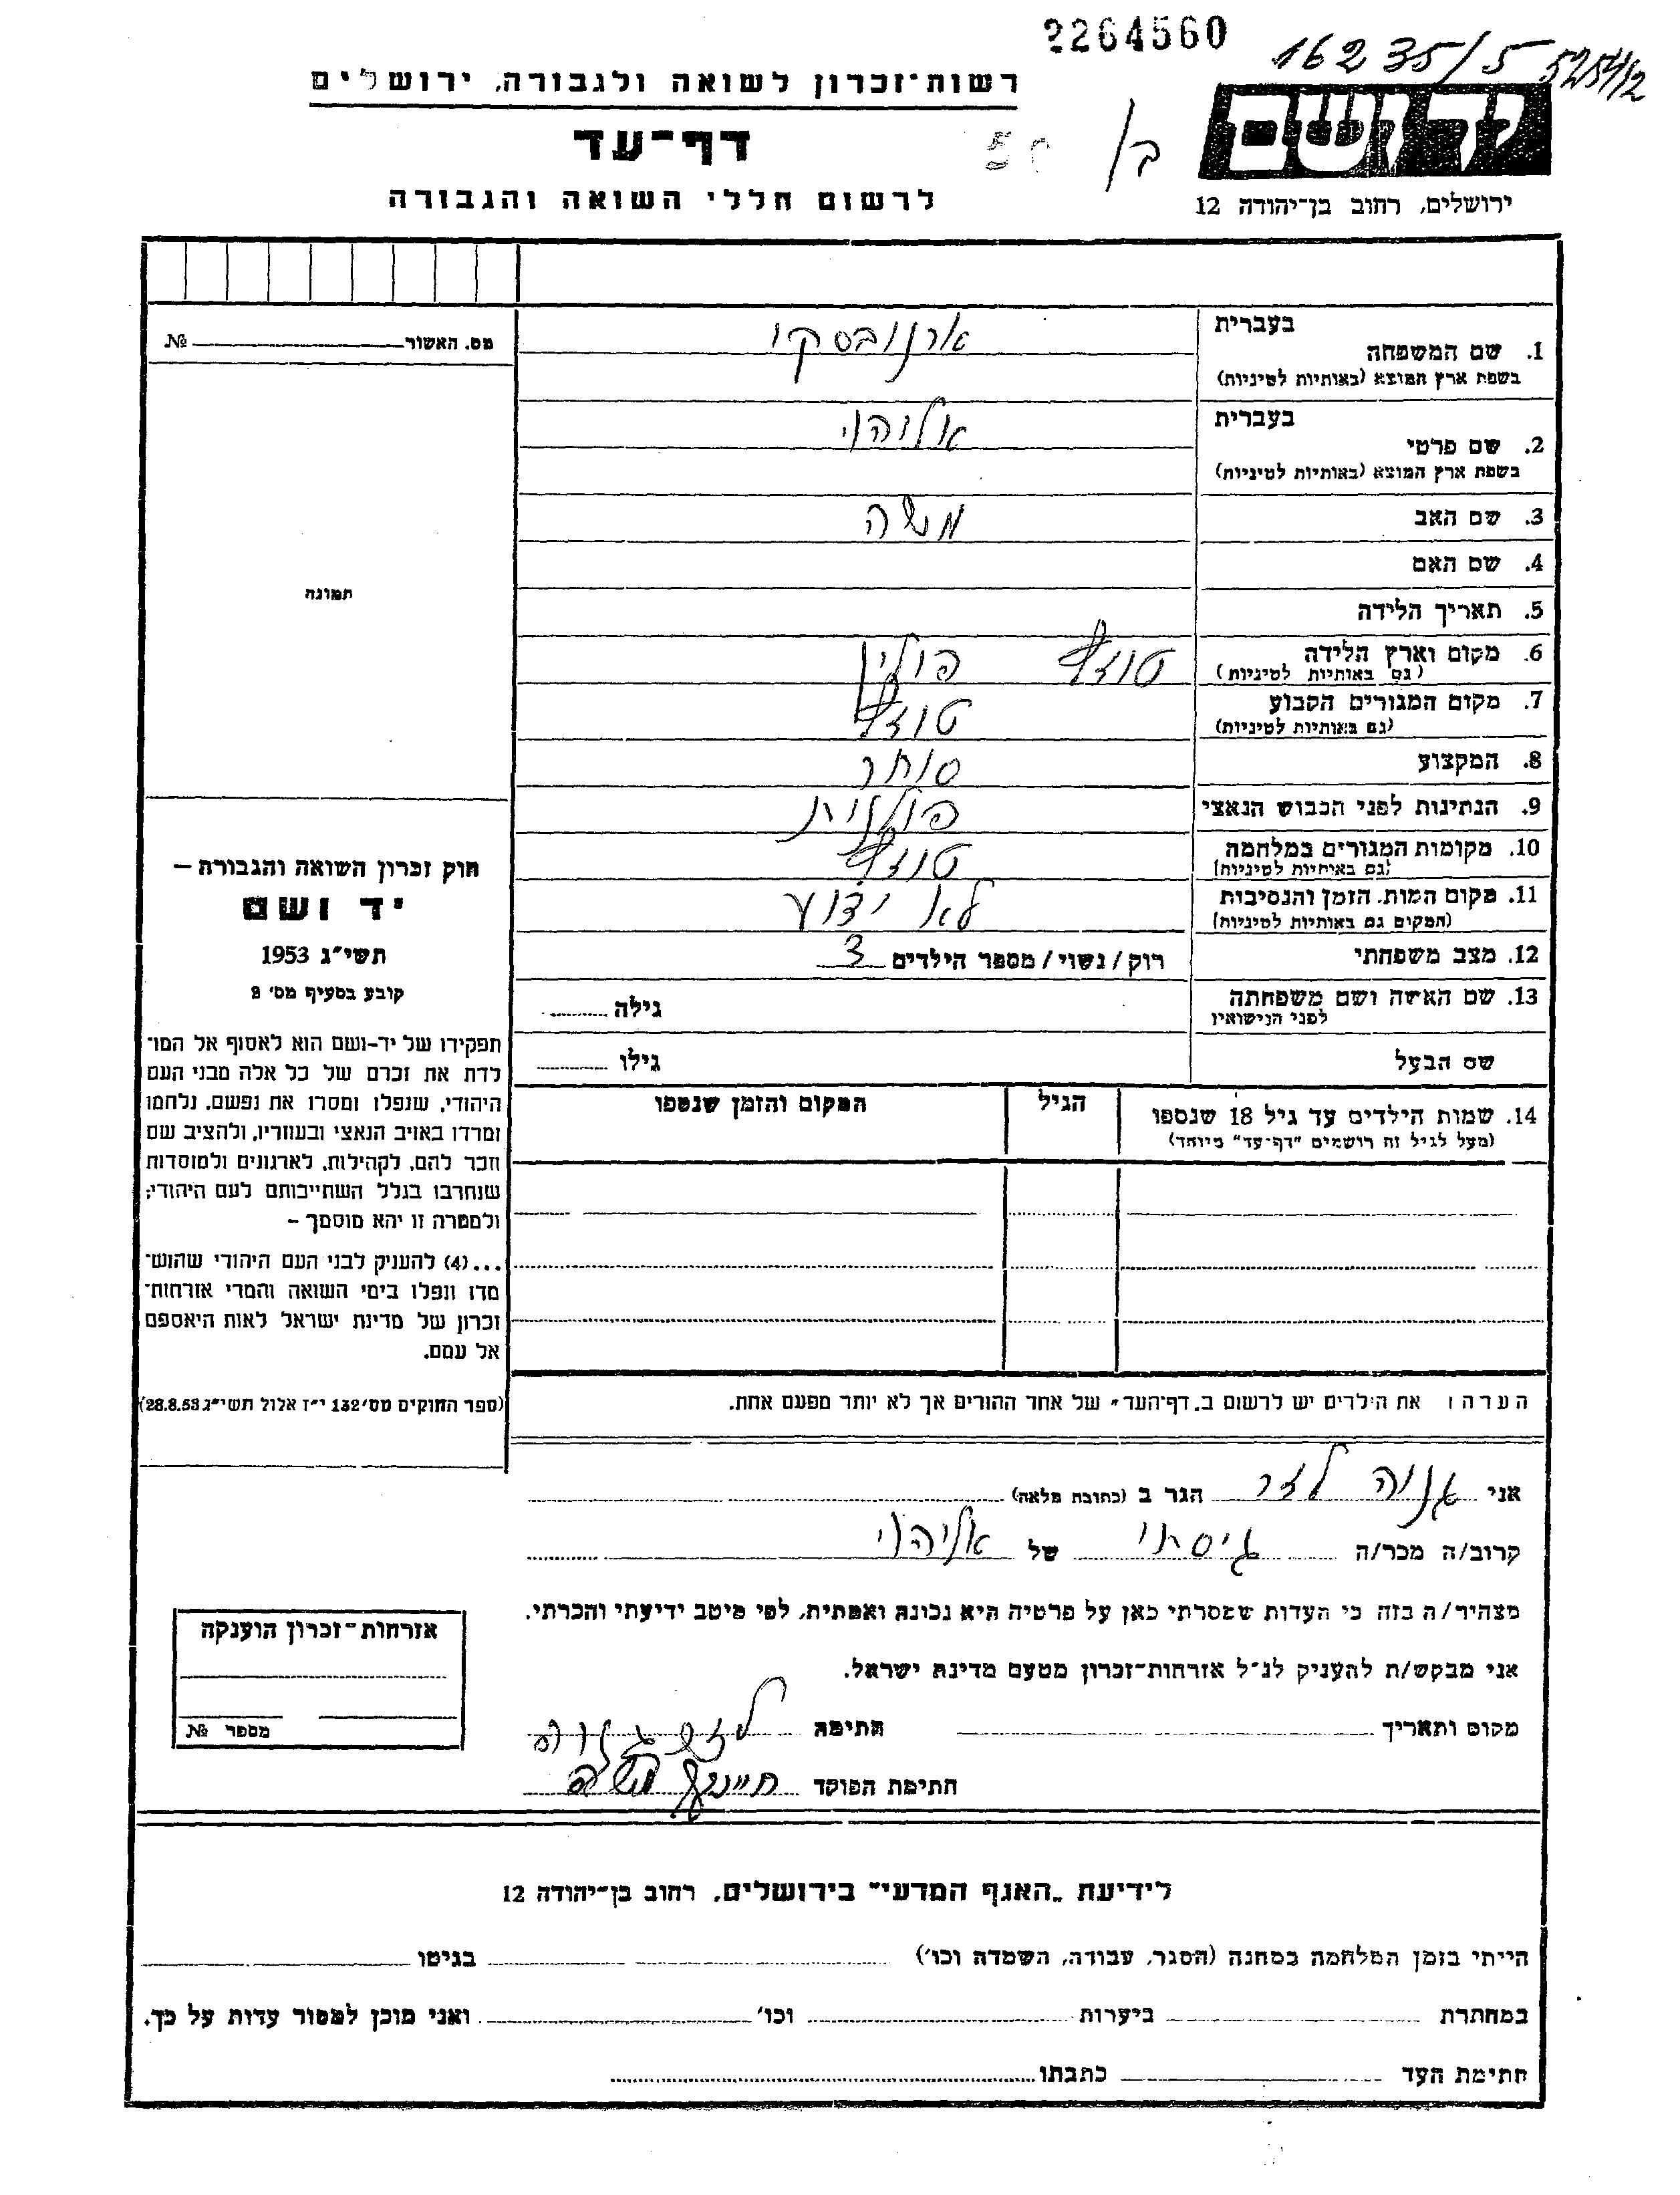 2264560
16235/5
525412
רשות־זכרון לשואה ולגבורה, ירושלים
דף־עד
ב/
לרשום חללי השואה והגבורה
יד ושם
ירושלים, רחוב בן־יהודה 12
בעברית
1. שם המשפחה ארנובסקי
בשפת ארץ המוצא (באותיות לטיניות)
מס. האשור № 
בעברית
2. שם פרטי אליהו
בשפת ארץ המוצא (באותיות לטיניות)
3. שם האב משה
4. שם האם
תמונה
5. תאריך הלידה
6. מקום וארץ הלידה לודז' פולין
(גם באותיות לטיניות)
7. מקום המגורים הקבוע לודז'
(גם באותיות לטיניות)
8. המקצוע סוחר
9. הנתינות לפני הכבוש הנאצי פולנית
10. מקומות המגורים במלחמה לודז'
(גם באותיות לטיניות)
11. מקום המות, הזמן והנסיבות לא ידוע
(המקום גם באותיות לטיניות)
12. מצב משפחתי רוק/נשוי/מספר הילדים 3
13. שם האשה ושם משפחתה גילה
לפני הנישואין
שם הבעל גילו
14. שמות הילדים עד גיל 18 שנספו הגיל המקום והזמן שנספו
(מעל לגיל זה רושמים "דף־עד" מיוחד)
חוק זכרון השואה והגבורה –
יד ושם
תשי"ג 1953
קובע בסעיף מס' 2
תפקידו של יד-ושם הוא לאסוף אל המו־
לדת את זכרם של כל אלה מבני העם
היהודי, שנפלו ומסרו את נפשם, נלחמו
ומרדו באויב הנאצי ובעוזריו, ולהציב שם
וזכר להם, לקהילות, לארגונים ולמוסדות
שנחרבו בגלל השתייכותם לעם היהודי;
ולמטרה זו יהא מוסמך –
...(4) להעניק לבני העם היהודי שהוש־
מדו ונפלו בימי השואה והמרי אזרחות־
זכרון של מדינת ישראל לאות היאספם
אל עמם.
(ספר החוקים מס' 132 י"ז אלול תשי"ג 28.8.53)
הערה: את הילדים יש לרשום ב„דף־העד" של אחד ההורים אך לא יותר מפעם אחת.
אני לזר הגר ב (כתובת מלאה)
קרוב/ה מכר/ה גיסתי של אליהו
מצהיר/ה בזה כי העדות שמסרתי כאן על פרטיה היא נכונה ואמתית, לפי מיטב ידיעתי והכרתי.
אני מבקש/ת להעניק לנ"ל אזרחות־זכרון מטעם מדינת ישראל.
מקום ותאריך חתימה
חתימת הפוקד
אזרחות־זכרון הוענקה
מספר №
לידיעת „האגף המדעי" בירושלים, רחוב בן־יהודה 12
הייתי בזמן המלחמה במחנה (הסגר, עבודה, השמדה וכו') בגיטו
במחתרת ביערות וכו' ואני מוכן למסור עדות על כך.
חתימת העד כתבתו